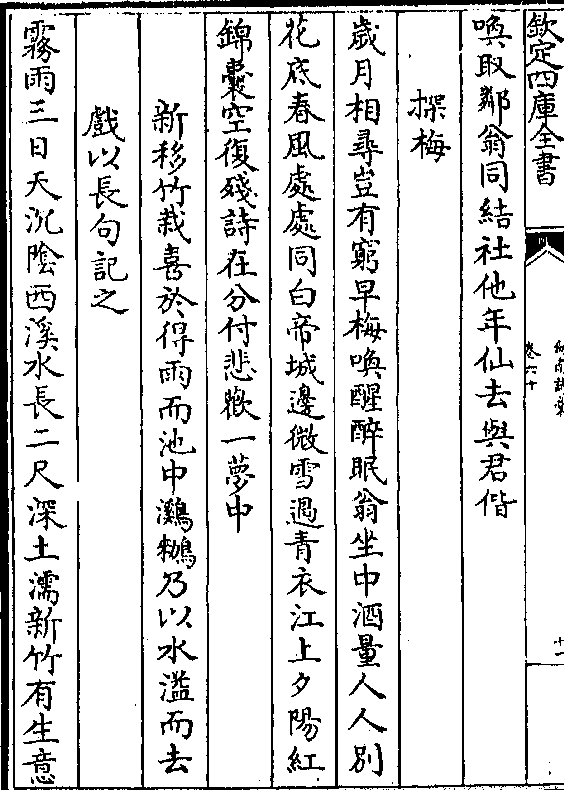 欽定四庫全書
劍南詩稾
卷六十
十一
喚取鄰翁同結社他年仙去與君偕
探梅
歲月相尋豈有窮早梅喚醒醉眠翁坐中酒量人人別
花底春風處處同白帝城邊微雪過青衣江上夕陽紅
錦囊空復殘詩在分付悲歡一夢中
新移竹栽喜於得雨而池中鸂鶒乃以水溢而去
戲以長句記之
霧雨三日天沉陰西溪水長二尺深土濡新竹有生意